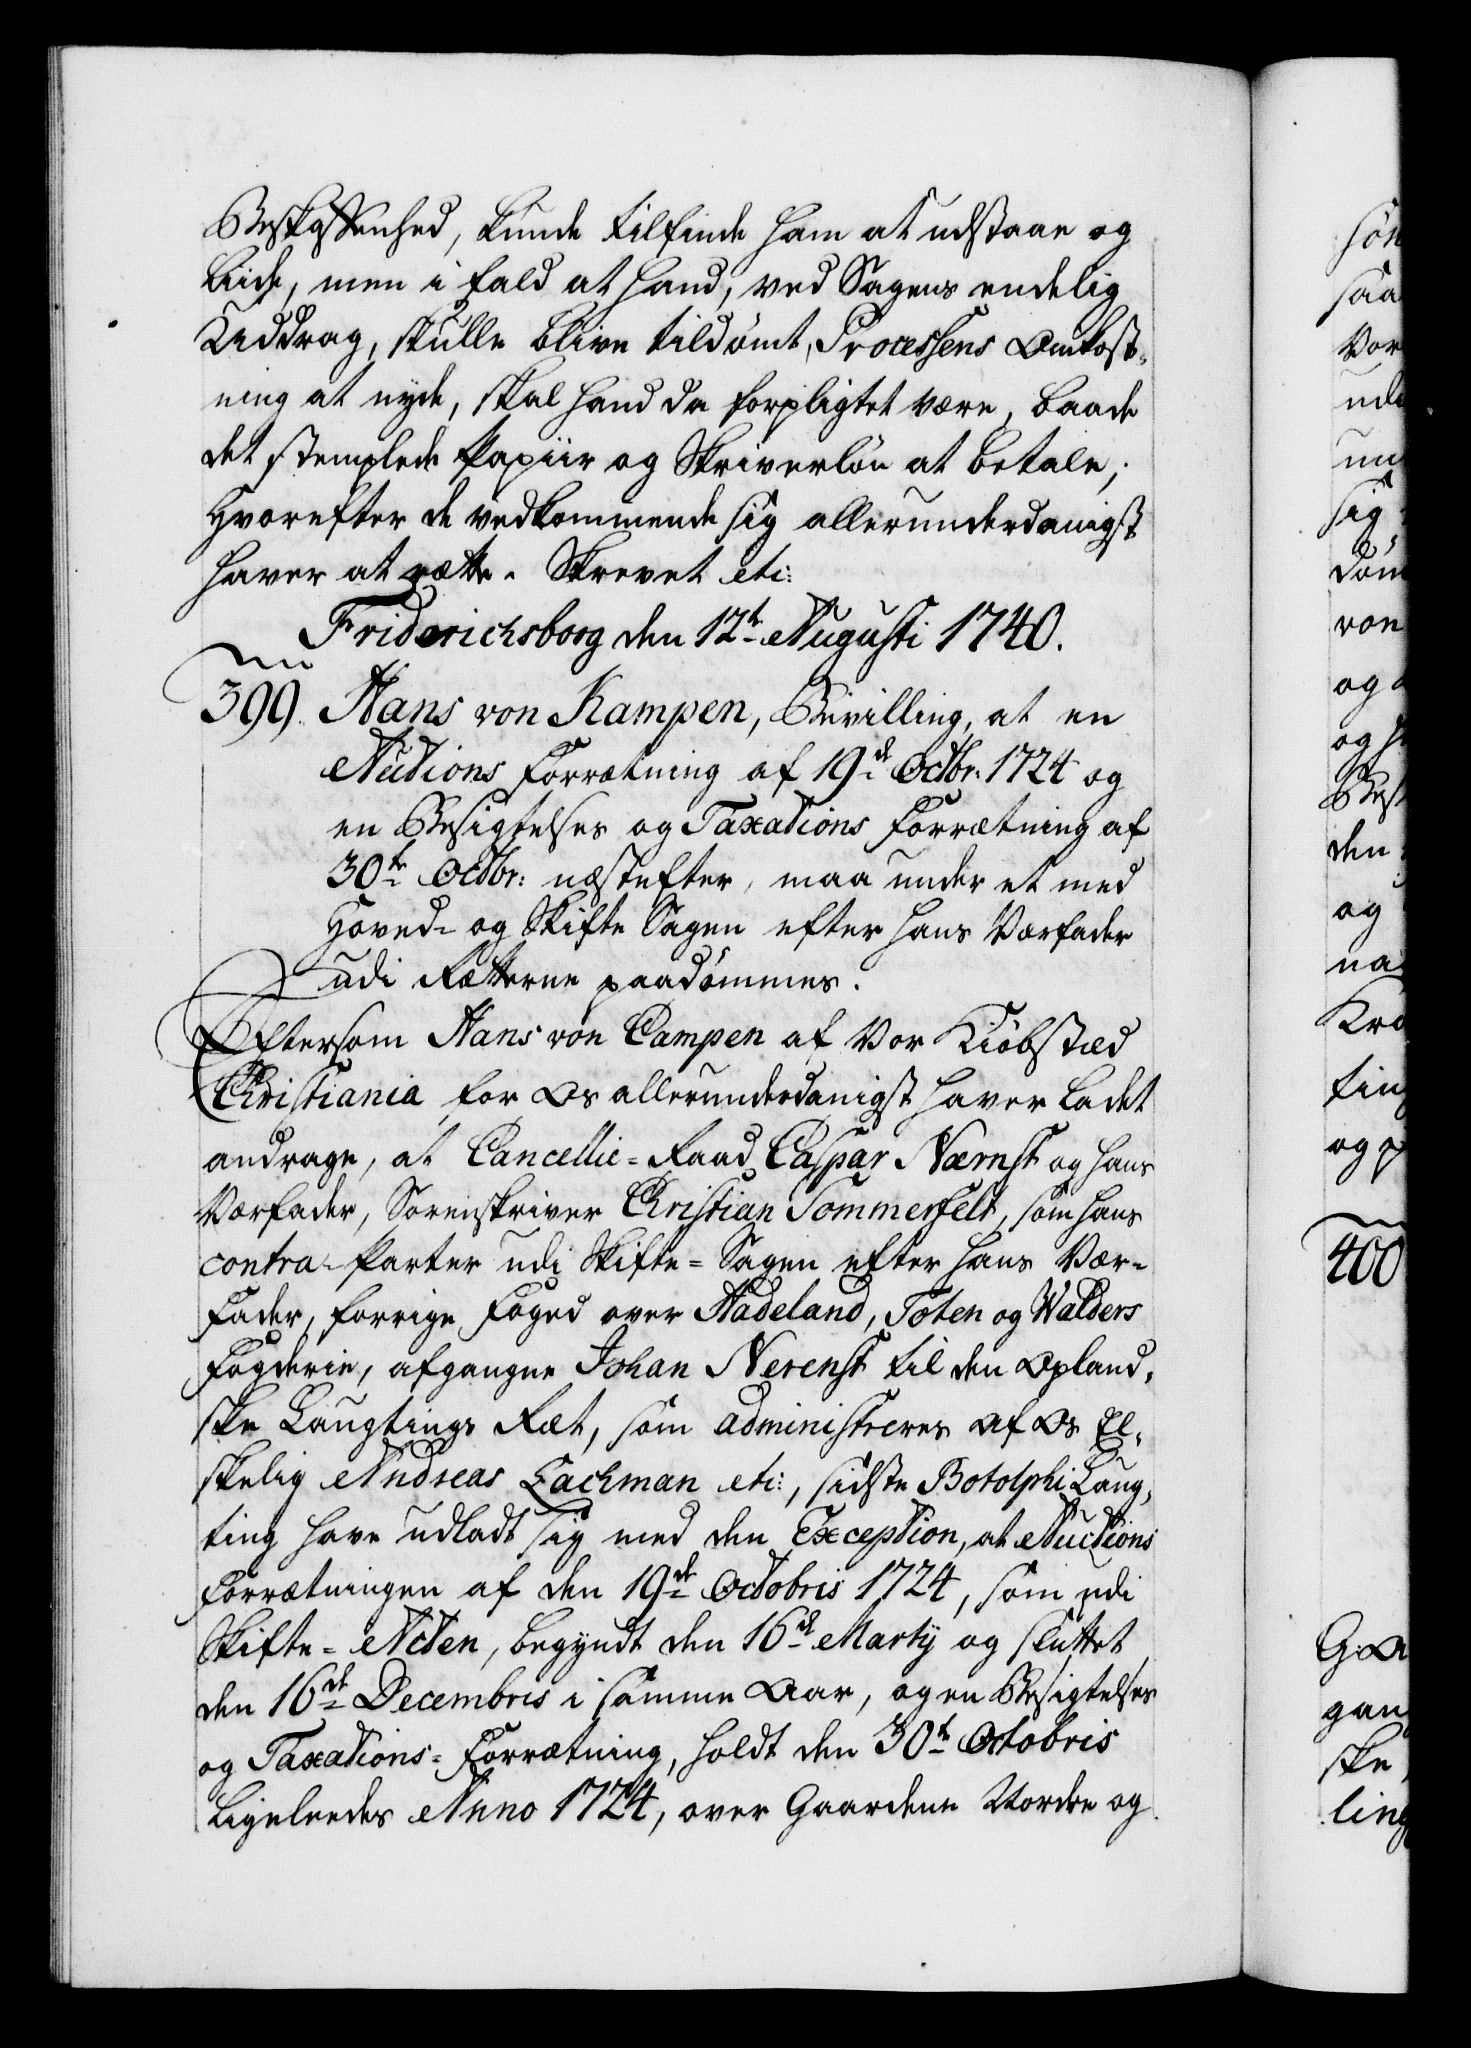 Beskaffenhed, kunde tilfinde ham at udstaae og
liide, men i fald at hand, ved Sagens endelig
Uddrag, skulle blive tildømt, Processens Omkost-
ning at nyde, skal hand da forpligtet være, baade
det stemplede Papiir og Skriverløn at betale;
Hvorefter de vedkommende sig allerunderdanigst
haver at rette. Skrevet etc:
Friderichsborg den 12te Augusti 1740.
399. Hans von Kampen, Bevilling, at en
Auctions Forrætning af 19de Octbr: 1724 og
en Besigtelses og Taxations Forrætning af
30te Octbr: næstefter, maa under et med
Hoved- og Skifte Sagen efter hans Værfader
udi Rætterne paadømmes.
Eftersom Hans von Campen af Vor Kiøbstæd
Christiania for Os allerunderdanigst haver ladet
andrage, at Cancellie-Raad Caspar Nærnst og hans
Værfader, Sorenskriver Christian Sommerfelt, som hans
contra-Parter udi Skifte-Sagen efter hans Vær-
fader, forrige Foged over Hadeland, Toten og Walders
Fogderie, afgangne Johan Nerenst til den Opland-
ske Laugtings Ræt, som administreres af Os El-
skelig Andreas Lachman etc:, sidste Botolphi Laug-
ting have udladt sig med den Exception, at Auctions
Forrætningen af den 19de Octobris 1724, som udi
Skifte-Acten, begyndt den 16de Martij og sluttet
den 16de Decembris i samme Aar, og en Besigtelses
og Taxations-Forrætning, holdt den 30te Octobris
ligeleedes Anno 1724, over Gaardene Nordre og
400